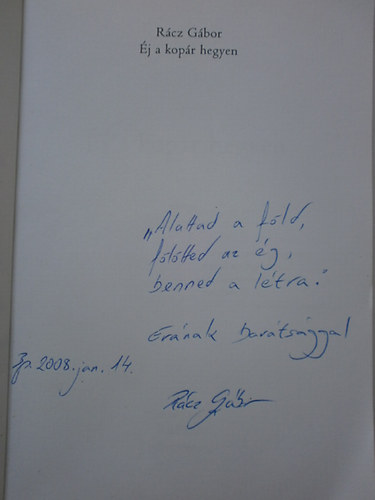 Rácz Gábor
Éj a kopár hegyen
„Alattad a föld,
fölötted az ég,
benned a létra."
Erának barátsággal
Bp. 2008. jan. 14.
Rácz Gábor